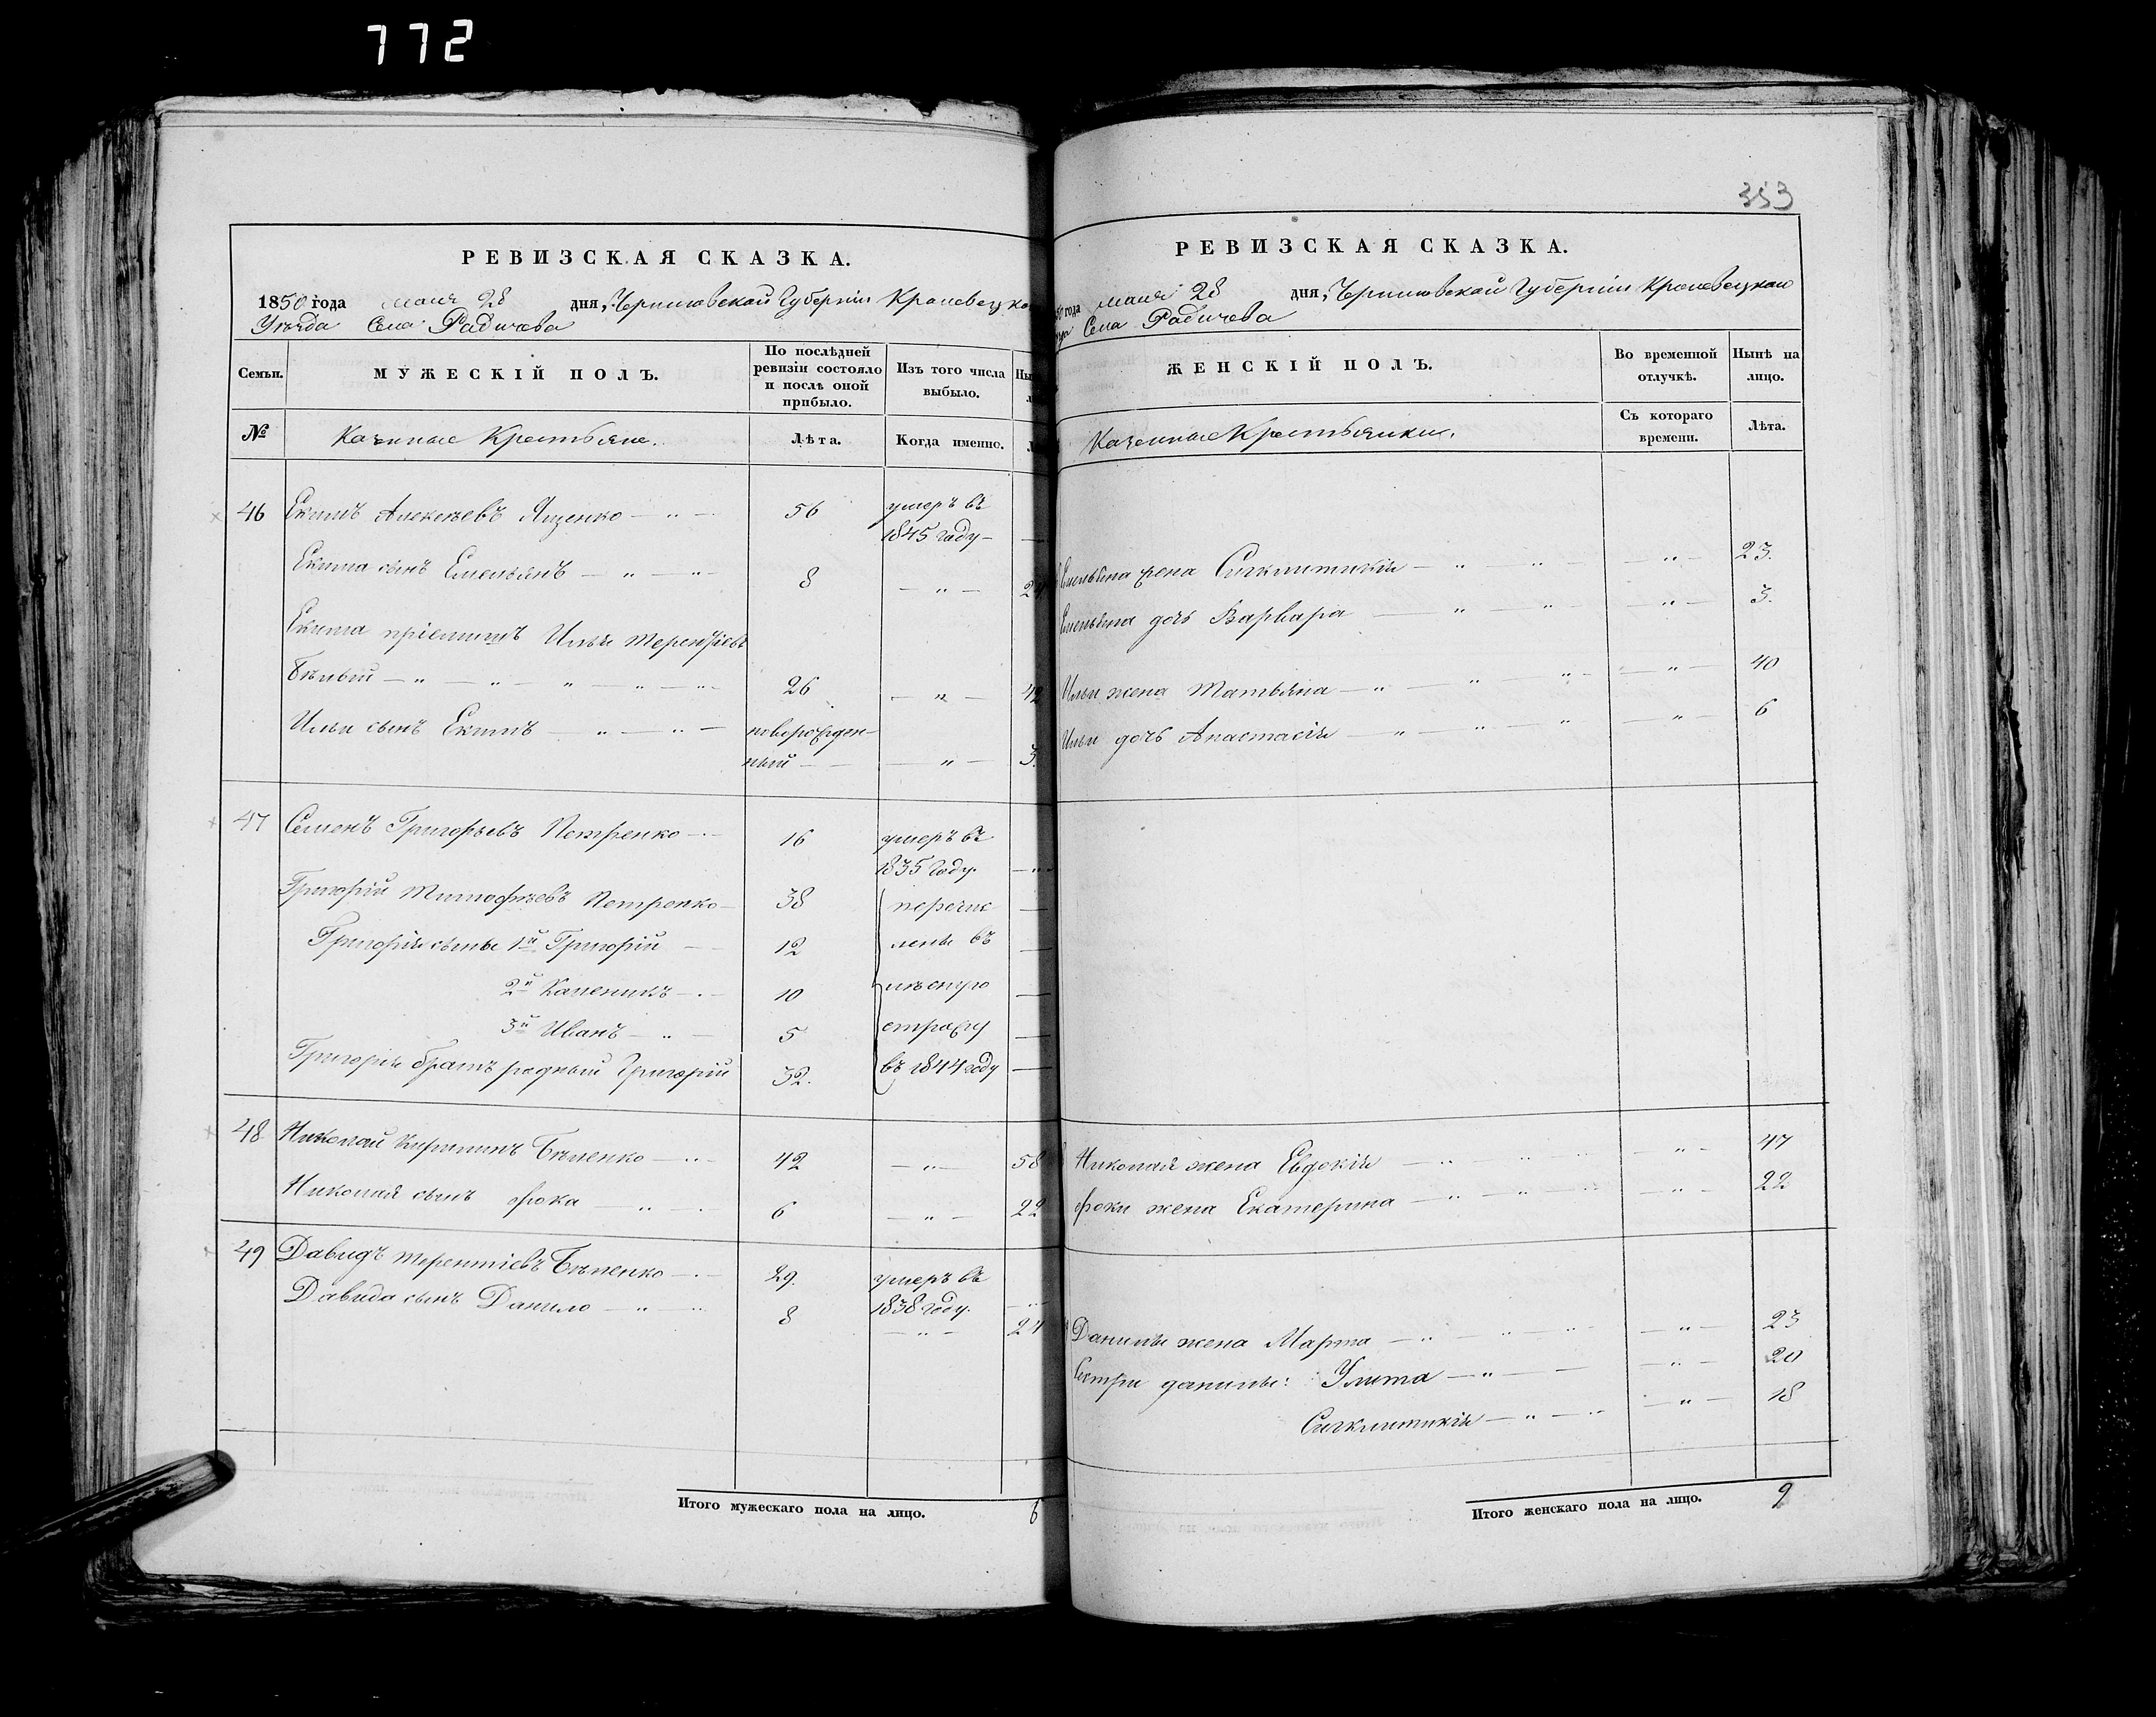 772
РЕВИЗСКАЯ СКАЗКА.
1850 года маия 28 дня, Черниговской Губернiи Кролевецко
Уѣзда Села Радичева
Семьи.
МУЖЕСКІЙ ПОЛЪ.
По послѣдней ревизіи состояло и послѣ оной прибыло.
Изъ того числа выбыло.
№
Казенные Крестьяне.
Лѣта.
Когда именно.
46 Екимъ Алексѣевъ Яценко — " — 56 умеръ въ
1845 году —
Екима сынъ Емельянъ — " — " — 8 — " — 24
Екима пріемышъ Илья Терентіевъ
Бѣлый — " — " — " — " — 26 — " — 42
Ильи сынъ Екимъ — " — " — новорожден-
ный — — " — 3.
47 Семенъ Григорьевъ Петренко — 16 умеръ въ
1835 году.
Григорій Тимофѣевъ Петренко — 38 перечис
Григорія сыны 1й Григорій — 12 лены въ
2й Каленикъ — 10
3й Иванъ — " — 5 стражу
Григорія братъ родный Григорій 32. въ 1844 году
48 Николай Кирилинъ Бѣленко — 42 — " — 58
Николая сынъ Фока — " — 6 — " — 22
49 Давидъ Терентіевъ Бѣленко — 29. умеръ въ
1838 году.
Давида сынъ Данило — " — 8 — " — 24
Итого мужескаго пола на лицо. 6
353
РЕВИЗСКАЯ СКАЗКА.
года маия 28 дня, Черниговской Губерніи Кролевецкаго
Села Радичева
ЖЕНСКІЙ ПОЛЪ.
Во временной отлучкѣ.
Нынѣ на лицо.
Казенные Крестьянки.
Съ котораго времени.
Лѣта.
Емельяна жена Сигклитикія — " — " — " — 23.
Емельяна дочь Варвара — " — " — " — 3.
Ильи жена Татьяна — " — " — " — 40
Ильи дочь Анастасія — " — " — " — 6
Николая жена Евдокія — " — " — 47
Фоки жена Екатерина — " — " — " — 22
Данилы жена Марфа — " — " — " — 23
Сестры Данилы: Улита — " — " — 20
Сигклитикія — " — " — 18
Итого женскаго пола на лицо. 9